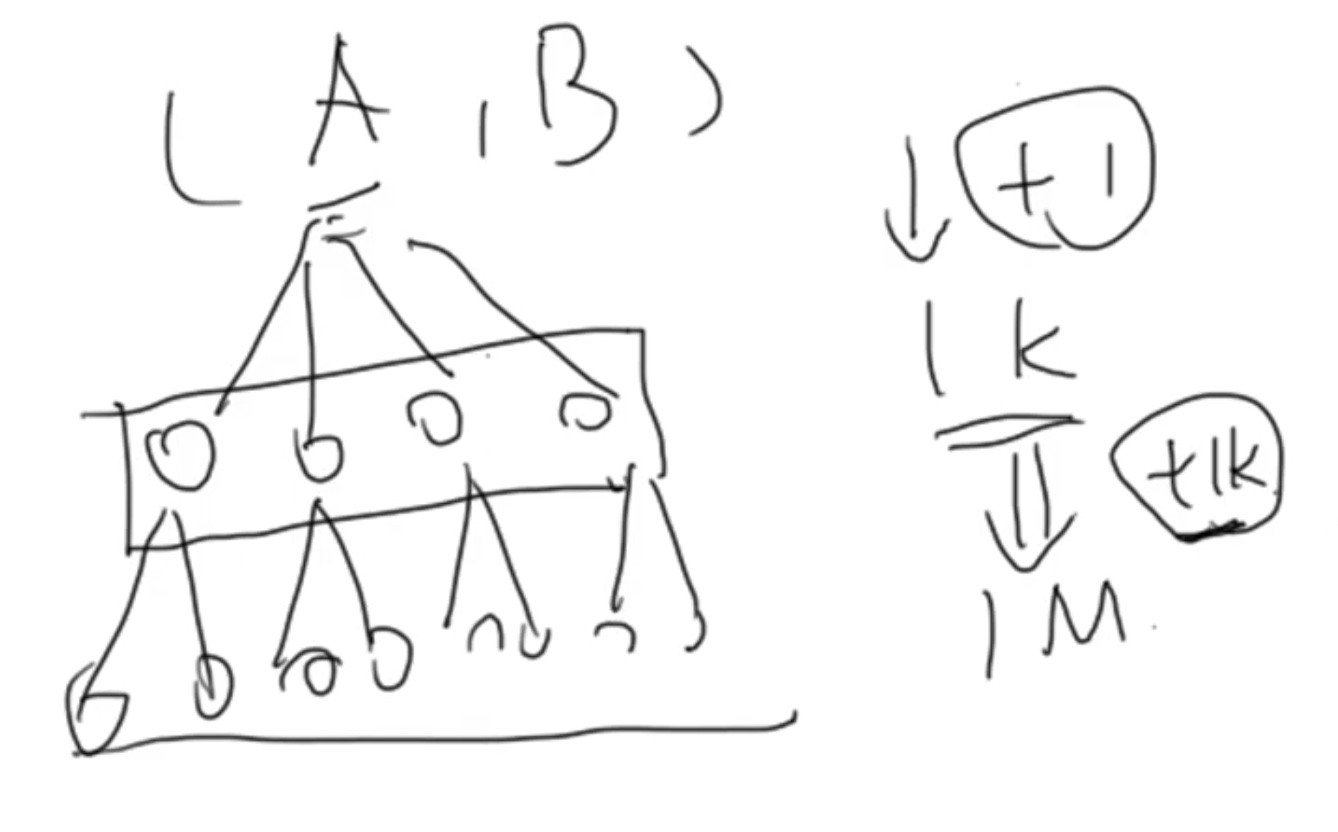 (A, B)
+1
1k
+1k
1M